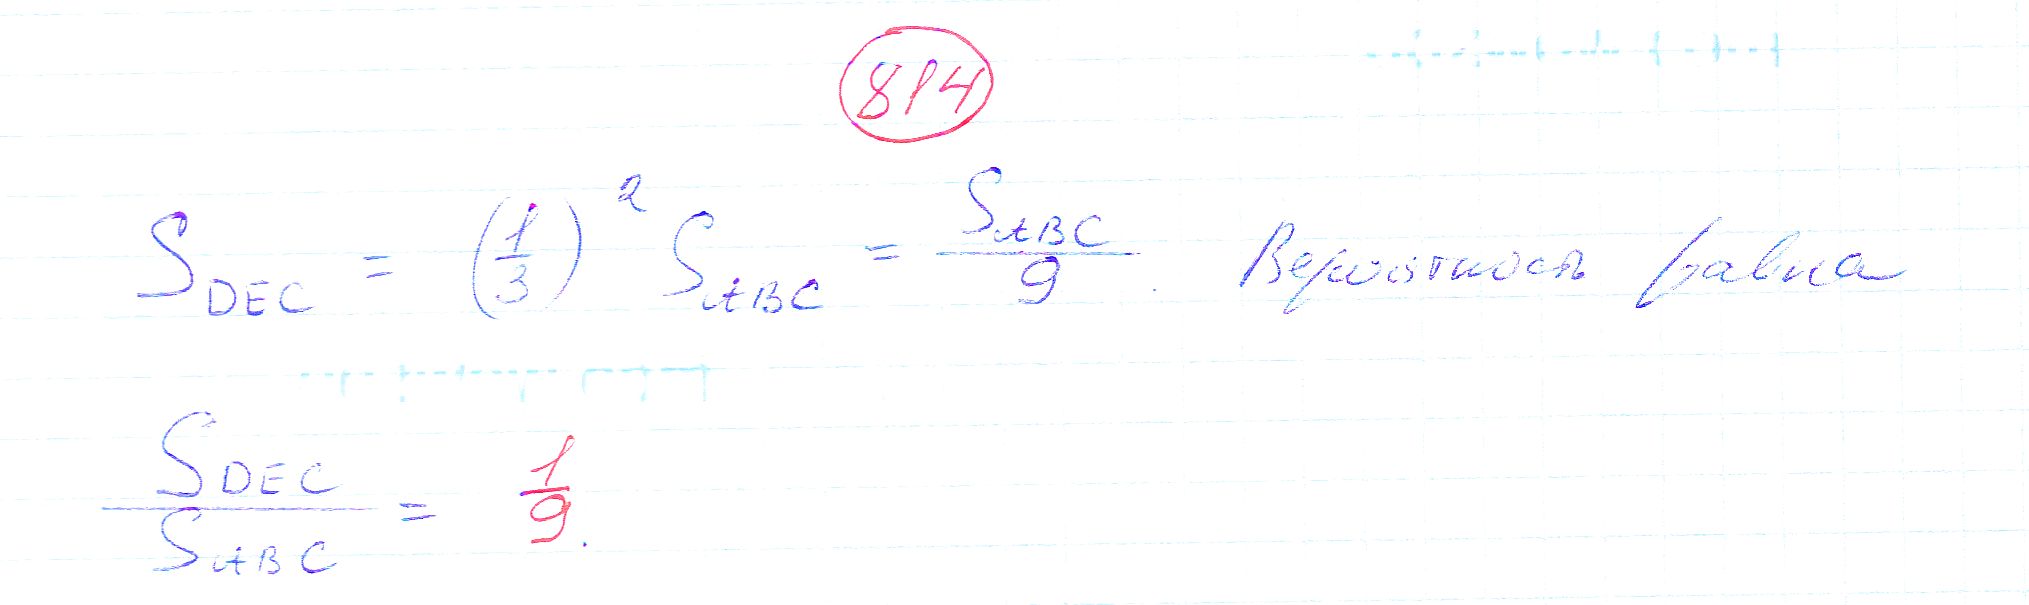 814
S_DEC = (1/3)² S_ABC = S_ABC/9. Вероятность равна
S_DEC/S_ABC = 1/9.